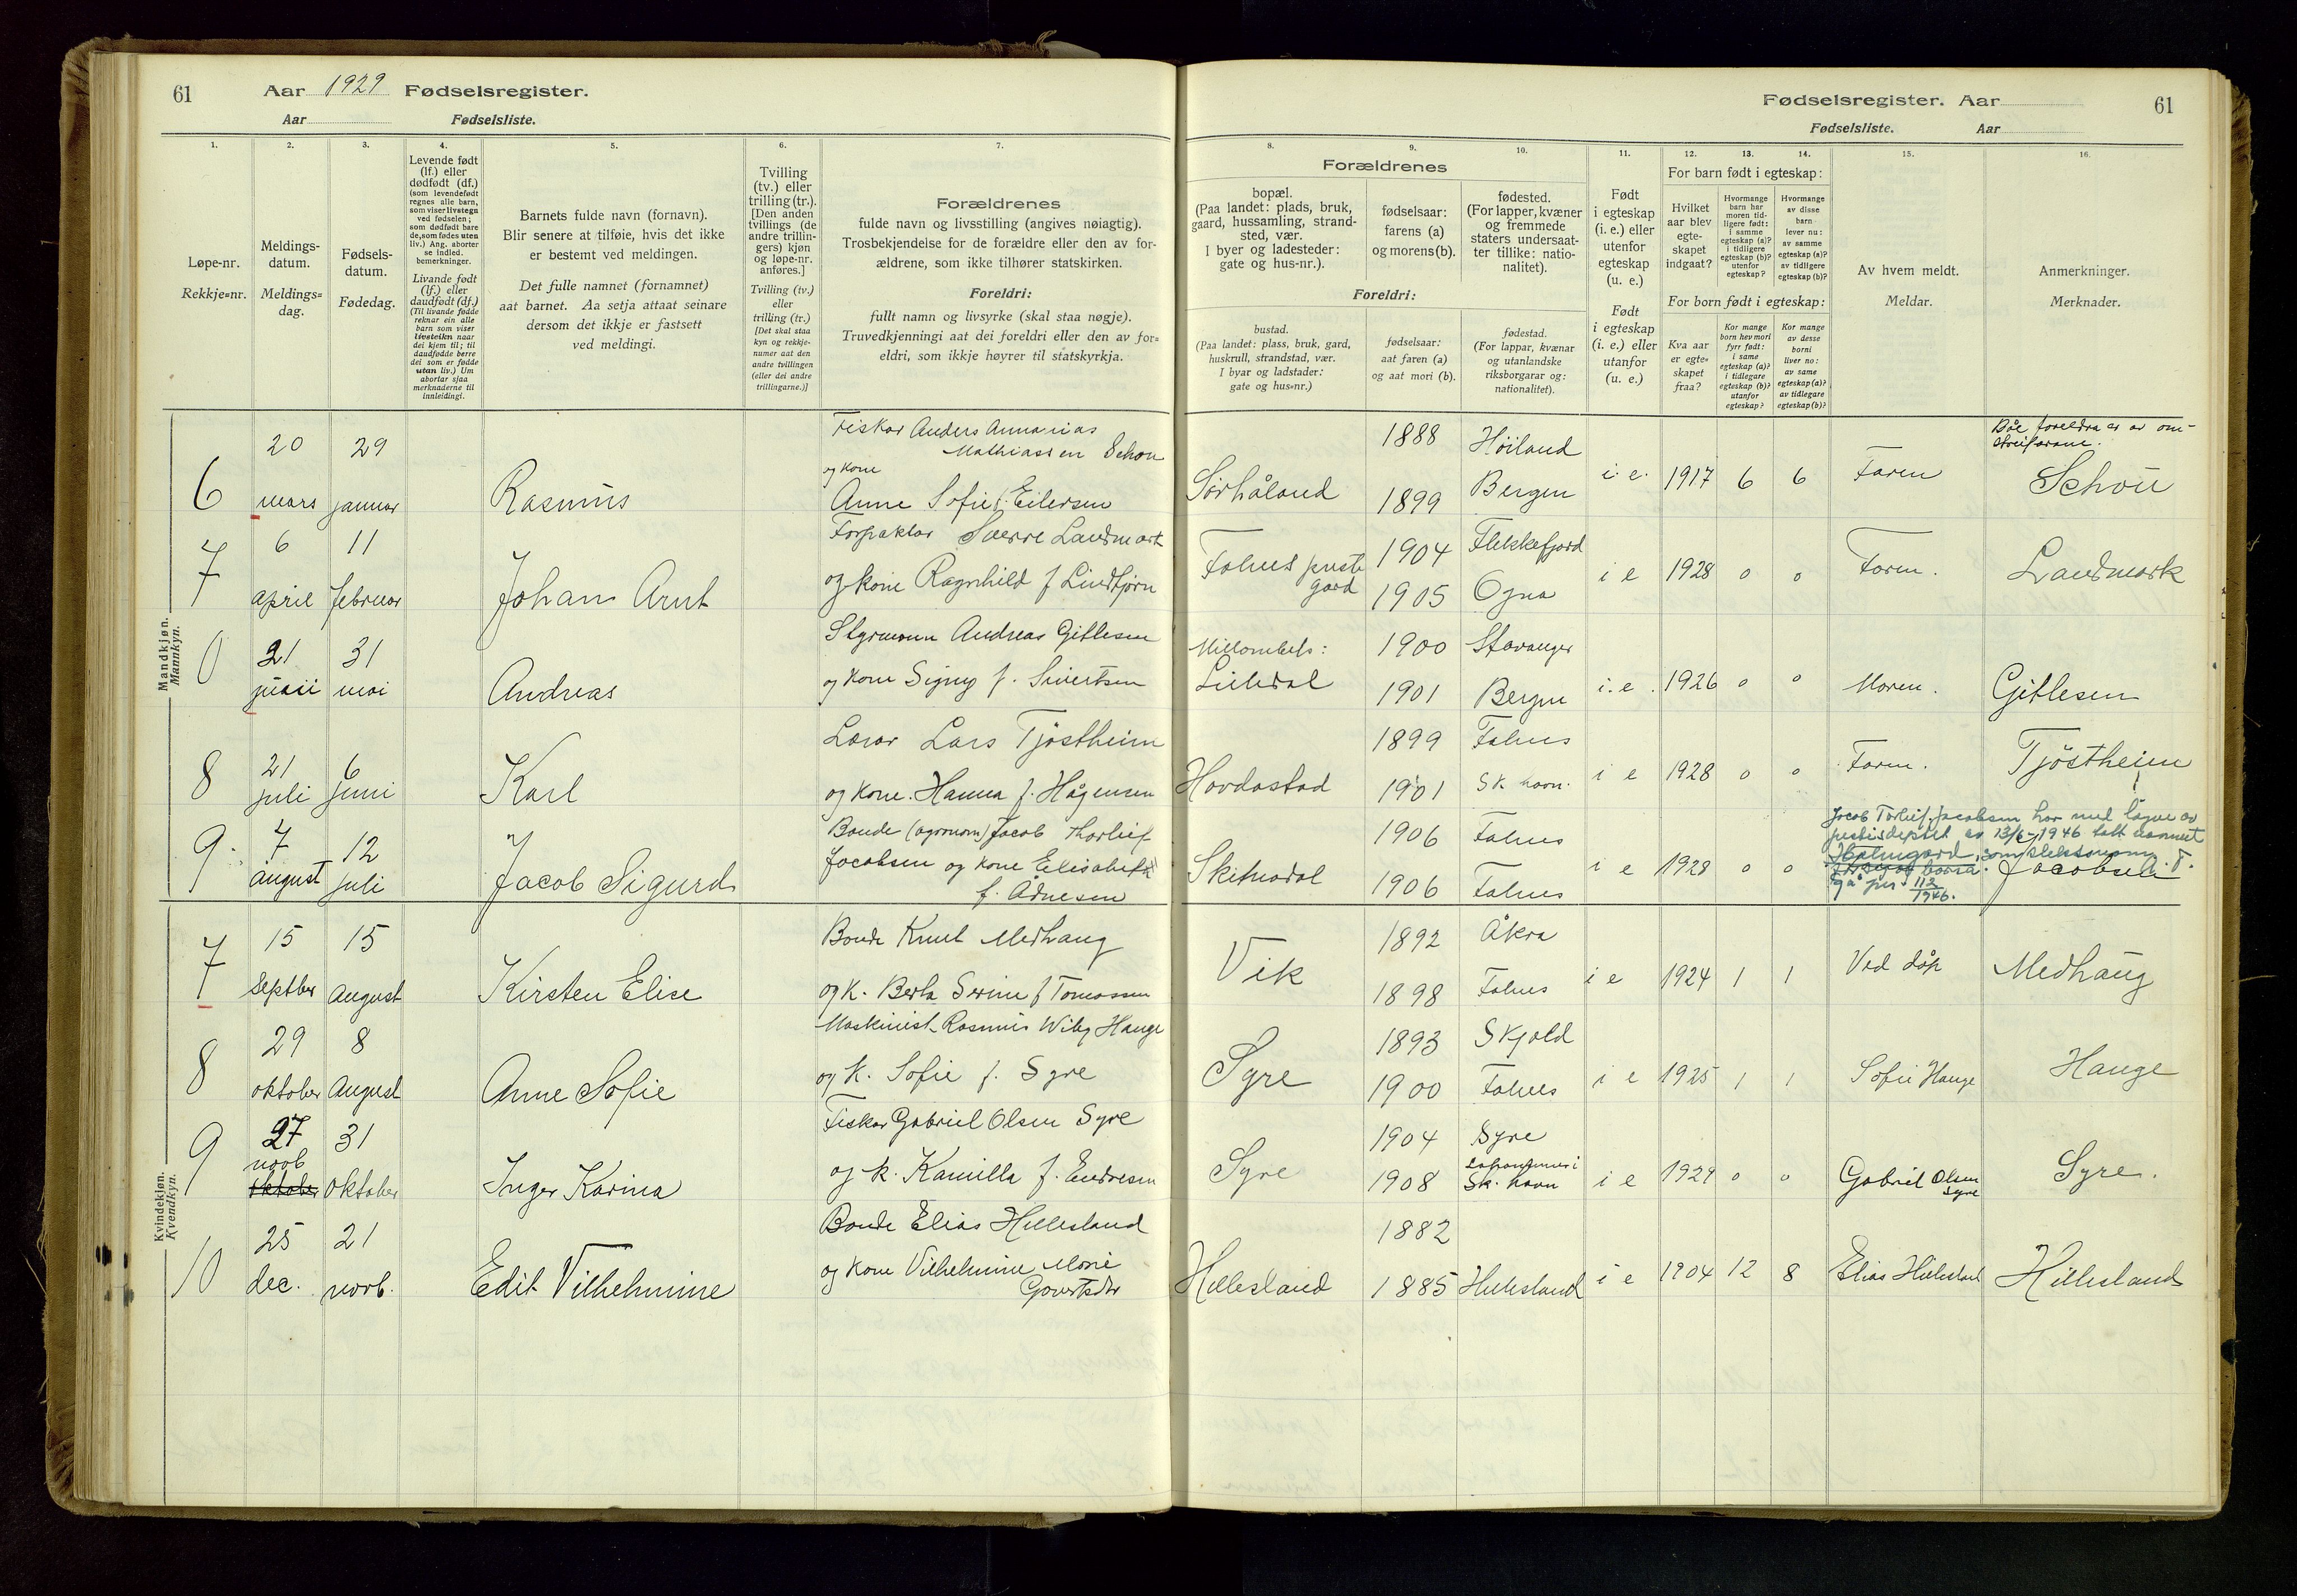 61
Aar 1929 Fødselsregister.
Aar Fødselsliste.
Fødselsregister. Aar 61
Fødselsliste. Aar
1.
Løpe-nr.
Rekkje=nr.
2.
Meldings-
datum.
Meldings=
dag.
3.
Fødsels-
datum.
Fødedag.
4.
Levende født
(lf.) eller
dødfødt (df.)
(som levendefødt
regnes alle barn,
som viser livstegn
ved fødselen;
som dødfødt bare
de, som fødes uten
liv.) Ang. aborter
se indled.
bemerkninger.
Livande født
(lf.) eller
daudfødt (df.)
(Til livande fødde
reknar ein alle
barn som viser
livsteikn naar
dei kjem til; til
daudfødde berre
dei som er fødde
utan liv.) Um
abortar sjaa
merknaderne til
innleidingi.
5.
Barnets fulde navn (fornavn).
Blir senere at tilføie, hvis det ikke
er bestemt ved meldingen.
Det fulle namnet (fornamnet)
aat barnet. Aa setja attaat seinare
dersom det ikkje er fastsett
ved meldingi.
6.
Tvilling
(tv.) eller
trilling (tr.).
[Den anden
tvillings (de
andre trillin-
gers) kjøn
og løpe-nr.
anføres.]
Tvilling (tv.)
eller
trilling (tr.)
[Det skal staa
kyn og rekkje-
numer aat den
andre tvillingen
(eller dei andre
trillingarne.)]
7.
Forældrenes
fulde navn og livsstilling (angives nøiagtig).
Trosbekjendelse for de forældre eller den av for-
ældrene, som ikke tilhører statskirken.
Foreldri:
fullt namn og livsyrke (skal staa nøgje).
Truvedkjenningi aat dei foreldri eller den av for=
eldri, som ikkje høyrer til statskyrkja.
Forældrenes
8.
bopæl.
(Paa landet: plads, bruk,
gaard, hussamling, strand-
sted, vær.
I byer og ladesteder:
gate og hus-nr.).
9.
fødselsaar:
farens (a)
og morens (b).
10.
fødested.
(For lapper, kvæner
og fremmede
staters undersaat-
ter tillike: natio-
nalitet).
Foreldri:
bustad.
(Paa landet: plass, bruk, gard,
huskrull, strandstad, vær.
I byar og ladstader:
gate og hus=nr.)
fødselsaar:
aat faren (a)
og aat mori (b).
fødestad.
(For lappar, kvænar
og utanlandske
riksborgarar og:
nationalitet).
11.
Født
i egteskap
(i. e.) eller
utenfor
egteskap
(u. e.)
Født
i egteskap
(i. e.) eller
utanfor
(u. e.)
For barn født i egteskap:
12.
Hvilket
aar blev
egte-
skapet
indgaat?
13.
Hvormange
barn har
moren tid-
ligere født:
i samme
egteskap (a)?
i tidligere
egteskap (b)?
utenfor
egteskap?
14.
Hvormange
av disse
barn
lever nu:
av samme
egteskap (a)?
av tidligere
egteskap (b)?
For born født i egteskap:
Kva aar
er egte=
skapet
fraa?
Kor mange
born hev mori
fyrr født:
i same
egteskap (a)?
i tidlegare
egteskap (b)?
utanfor
egteskap?
Kor mange
av desse
borni
liver no:
av same
egteskap (a)?
av tidlegare
egteskap (b)?
15.
Av hvem meldt.
Meldar.
16.
Anmerkninger.
Merknader.
Mandkjøn.
Mannkyn.
6 20 mars 29 januar Rasmus
Fiskar Anders Annanias
Mathiassen Schou
og kone
Anne Sofie f. Eilersen
Sørhåland 1888 Höiland
1899 Bergen
i. e. 1917 6 6 Faren
Både foreldra er av om-
streifarane.
Schou
7 6 april 11 februar Johan Arnt
Forpaktar Sverre Landmark
og kone Ragnhild f Lindtjørn
Falnes preste
gard 1904 Flekkefjord
1905 Ogna
i e 1928 0 0 Faren. Landmark
0 21 juni 31 mai Andreas
Styrmann Andreas Gitlesen
og kone Signy f. Sivertsen
Millombels:
1900 Stavanger
1901 Bergen
i. e. 1926 0 0 Moren. Gitlesen
8 21 juli 6 juni Karl
Lærar Lars Tjøstheim
og kone. Hanna f. Hågensen
Hordastad 1899 Falnes
1901 Sk. havn.
i e 1928 0 0 Faren. Tjøstheim
9. 7 august 12 juli Jacob Sigurd
Bonde (agronom) Jacob Thorleif
Jacobsen og kone Elisabeth
f. Ådnesen
Skitnadal 1906 Falnes
1906 Falnes
i e 1928 0 0
Jacob Torleif Jacobsen har med løyve av
justisdeptet av 13/6-1946 tatt namnet
Holmgard, som slektsnamn
112
1946.
Jacobsen
Kvindekjøn.
Kvendkyn.
7 15 Septber 15 August Kirsten Elise
Bonde Knut Medhaug
og k. Berta Serine f Tomassen
Vik 1892 Åkra
1898 Falnes
i e 1924 1 1 Ved dåp Medhaug
8 29 oktober 8 August Anne Sofie
Maskinist Rasmus Wiby Hauge
og k. Sofie f. Syre
Syre 1893 Skjold
1900 Falnes
i e 1925 1 1 Sofie Hauge Hauge
9 27 novb oktober 31 oktober Inger Karina
Fiskar Gabriel Olsen Syre
og k. Kamilla f. Endresen
Syre 1904 Syre
1908 Sk. havn
i e 1929 0 0 Gabriel Olsen
Syre
Syre.
10 25 dec. 21 novb. Edit Vilhelmine
Bonde Elias Hillesland
og kone Vilhelmine Marie
Govertsdtr
Hillesland 1882
1885 Hillesland
i e 1904 12 8 Elias Hillesland Hillesland